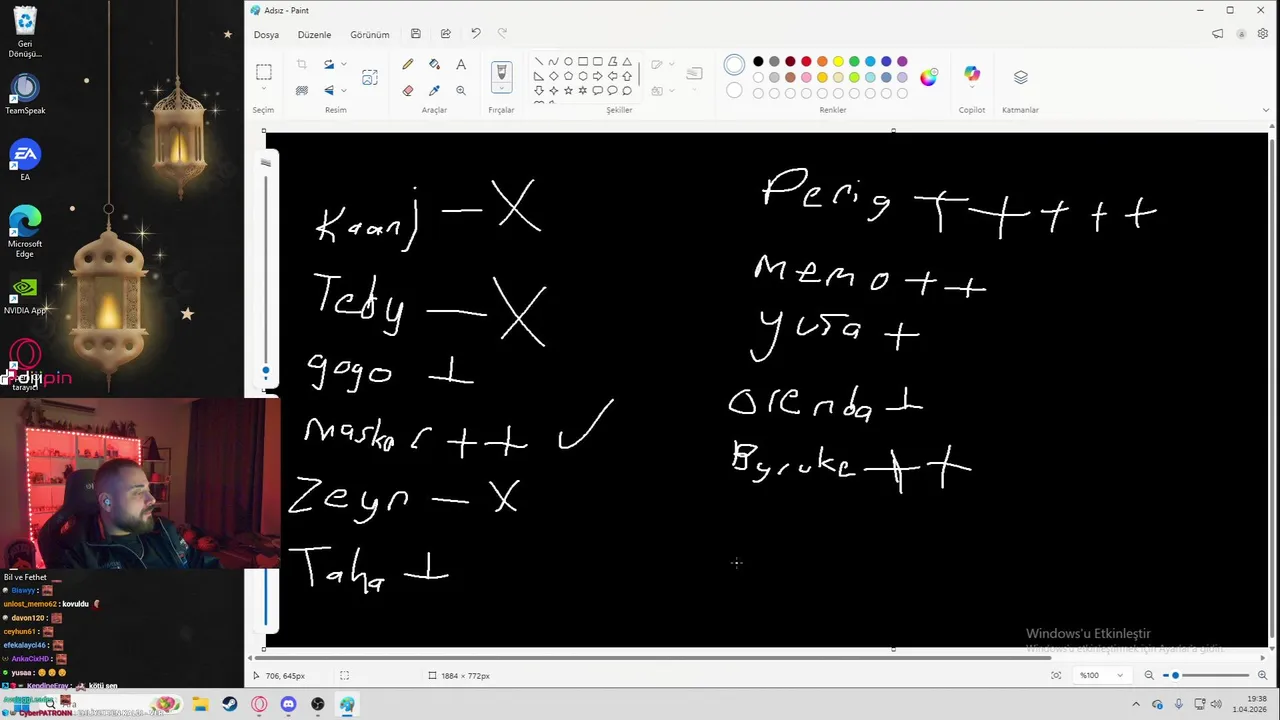 Adsız - Paint
Dosya Düzenle Görünüm
Seçim
Resim
Araçlar
Fırçalar
Şekiller
Renkler
Copilot
Katmanlar
Geri
Dönüşü...
TeamSpeak
EA
Microsoft
Edge
NVIDIA App
tarayıcı
Kaanj — X
Teby — X
gogo +
maskar ++ ✓
Zeyn — X
Taha +
Perig +++++
memo ++
yusa +
orenda +
Byruke ++
Bil ve Fethet
Biawyy :
unlost_memo62 : kovuldu
davon120 :
ceyhun61 :
efekalayci46 :
AnkaCixHD :
yusaa :
KendineEray : kötü sen
CyberPATRONN :
Windows'u Etkinleştir
Windows'u etkinleştirmek için Ayarlar'a gidin.
706, 645px
1884 × 772px
%100
19:38
1.04.2026